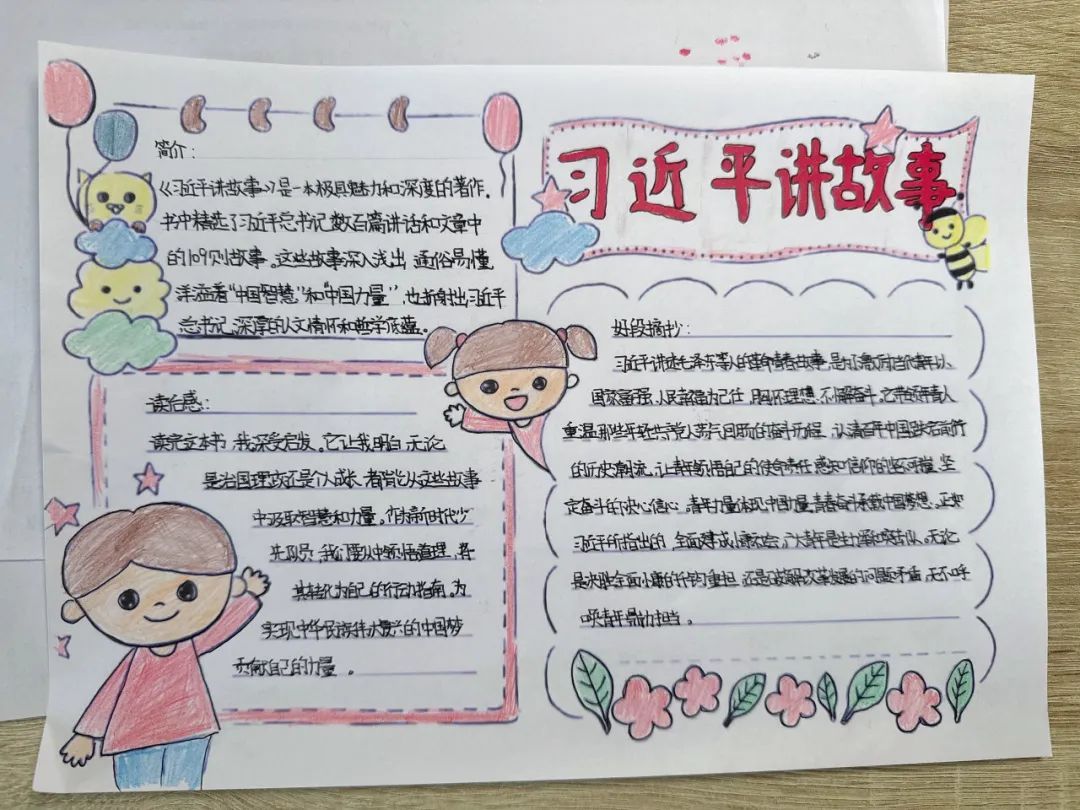 习近平讲故事
简介：
《习近平讲故事》是一本极具魅力和深度的著作，
书中精选了习近平总书记数百篇讲话和文章中
的109则故事。这些故事深入浅出 通俗易懂
洋溢着“中国智慧”和“中国力量”，也折射出习近平
总书记 深厚的人文情怀和哲学底蕴。
读后感：
读完这本书，我深受启发。它让我明白，无论
是治国理政还是个人成长，都能从这些故事
中汲取智慧和力量。作为新时代少
先队员，我们要从中领悟道理，将
其转化为自己的行动指南。为
实现中华民族伟大复兴的中国梦
贡献自己的力量。
好段摘抄：
习近平讲述毛泽东等人的革命青春故事，是为了激励当代青年以
国家富强、人民幸福为己任，胸怀理想、不懈奋斗，它带领年青人
重温那些年轻共产党人勇气回所的奋斗历程，认清百年中国跌宕前行
的历史潮流，让青年领悟自己的使命责任感知信仰的坚不可摧，坚
定奋斗的决心信心。青年力量体现中国力量，青春奋斗承载中国梦想。正如
习近平所指出的，全面建成小康社会，广大青年是生力军和突击队。无论
是决胜全面小康的千钧重担，还是破解改革发展的问题矛盾，无不呼
唤青年鼎力担当。